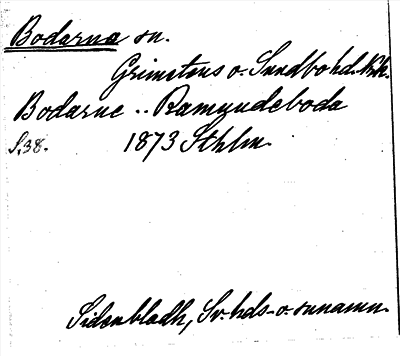 Bodarna sn.
Grimstens o. Sundbo hd. Nrk.
Bodarne .. Ramundeboda
S. 38. 1873 Sthlm.
Sidenbladh, Sv. hds- o. snnamn.